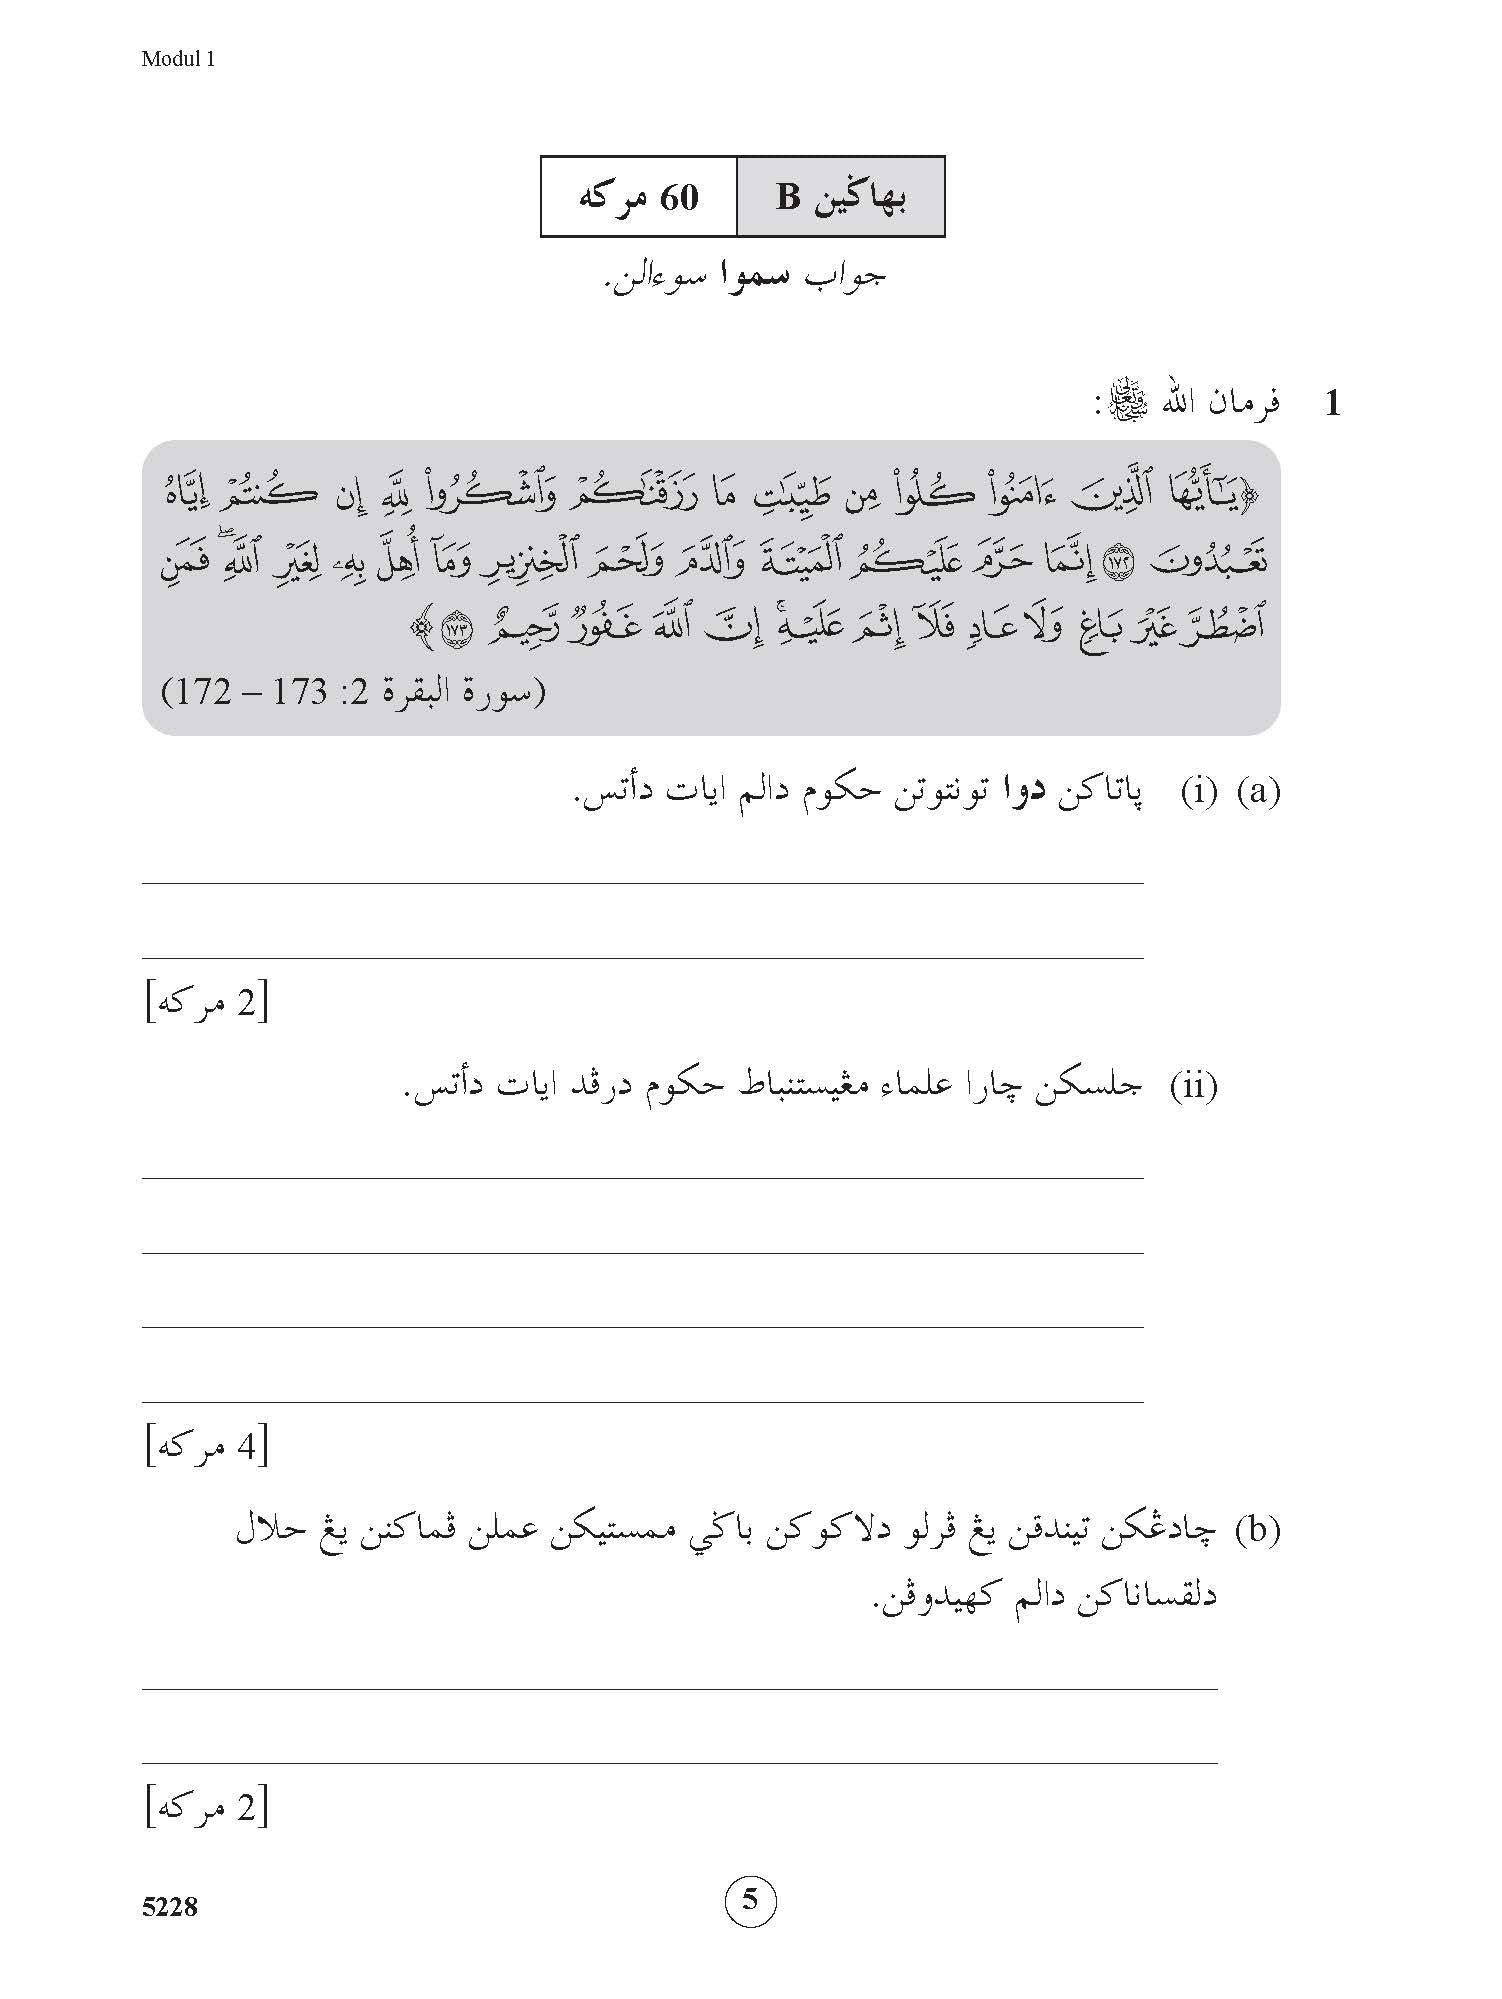 Modul 1
بهاݢين B
60 مركه
جواب سموا سوءالن.
1 فرمان الله ﷾:
﴿يَـٰٓأَيُّهَا ٱلَّذِينَ ءَامَنُوا۟ كُلُوا۟ مِن طَيِّبَـٰتِ مَا رَزَقْنَـٰكُمْ وَٱشْكُرُوا۟ لِلَّهِ إِن كُنتُمْ إِيَّاهُ
تَعْبُدُونَ ١٧٢ إِنَّمَا حَرَّمَ عَلَيْكُمُ ٱلْمَيْتَةَ وَٱلدَّمَ وَلَحْمَ ٱلْخِنزِيرِ وَمَآ أُهِلَّ بِهِۦ لِغَيْرِ ٱللَّهِ ۖ فَمَنِ
ٱضْطُرَّ غَيْرَ بَاغٍ وَلَا عَادٍ فَلَآ إِثْمَ عَلَيْهِ ۚ إِنَّ ٱللَّهَ غَفُورٌ رَّحِيمٌ ١٧٣﴾
(سورة البقرة 2: 173 – 172)
(a) (i) ڽاتاكن دوا تونتوتن حكوم دالم ايات دأتس.
[2 مركه]
(ii) جلسكن چارا علماء مڠيستنباط حكوم درڤد ايات دأتس.
[4 مركه]
(b) چادڠكن تيندقن يڠ ڤرلو دلاكوكن باݢي ممستيكن عملن ڤماكنن يڠ حلال
دلقساناكن دالم كهيدوڤن.
[2 مركه]
5228
5